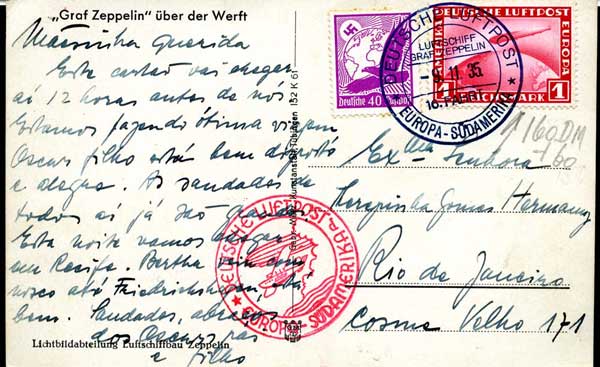 „Graf Zeppelin" über der Werft
Mãesinha Querida
Este cartão vai chegar
aí 12 horas antes de nós
Estamos fazendo ótima viagem
Oscar filho está bem disposto
e alegre. As saudades de
todos aí já são grandes.
Esta noite vamos chegar
em Recife. Bertha veio com
nosco até Friedrichshafen, está
bem. Saudades, abraços
dos Oscars
e filho
Lichtbildabteilung Luftschiffbau Zeppelin
152 K 61
Deutsche 40 Luftpost
DEUTSCHE LUFTPOST
LUFTSCHIFF
GRAF ZEPPELIN
-9.11.35.
16. FAHRT
EUROPA-SÜDAMERIKA
DEUTSCHE LUFTPOST
EUROPA
1 REICHSMARK 1
160 DM
Exma Senhora
Gomes Hermanny
Rio de Janeiro
Cosme Velho 171
DEUTSCHE LUFTPOST
EUROPA-SÜDAMERIKA